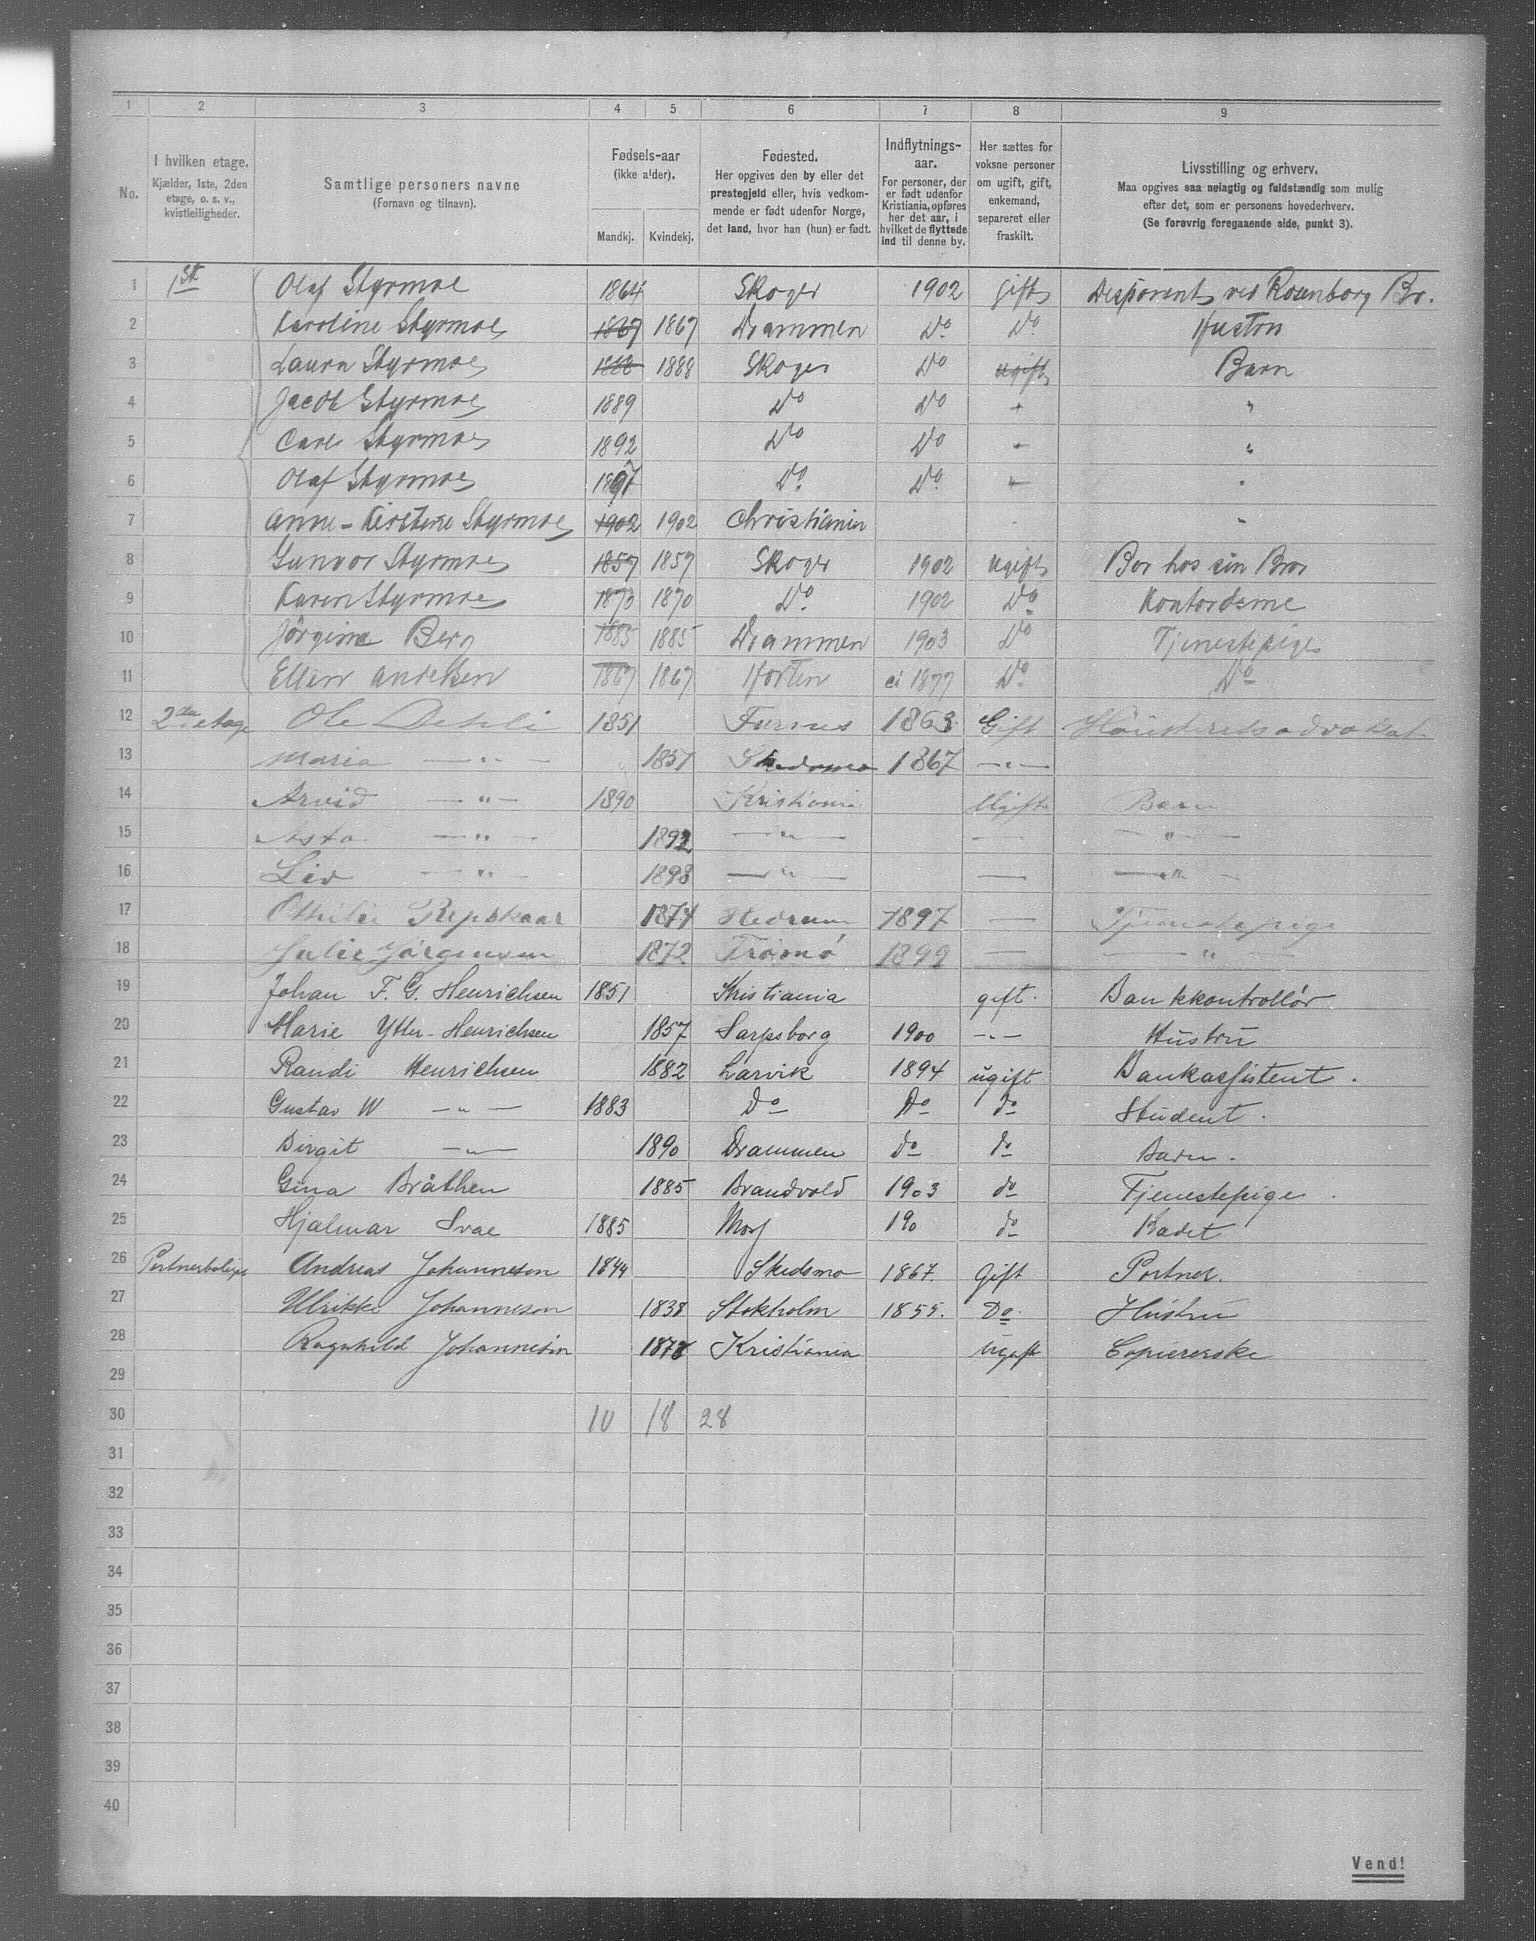 1 2 3 4 5 6 7 8 9
No.
I hvilken etage.
Kjælder, 1ste, 2den
etage, o. s. v.,
kvistleiligheder.
Samtlige personers navne
(Fornavn og tilnavn).
Fødsels-aar
(ikke alder).
Mandkj. Kvindekj.
Fødested.
Her opgives den by eller det
prestegjeld eller, hvis vedkom-
mende er født udenfor Norge,
det land, hvor han (hun) er født.
Indflytnings-
aar.
For personer, der
er født udenfor
Kristiania, opføres
her det aar, i
hvilket de flyttede
ind til denne by.
Her sættes for
voksne personer
om ugift, gift,
enkemand,
separeret eller
fraskilt.
Livsstilling og erhverv.
Maa opgives saa nøiagtig og fuldstændig som mulig
efter det, som er personens hovederhverv.
(Se forøvrig foregaaende side, punkt 3).
1 1st Olaf Styrmoe 1864 Skoger 1902 Gift Disponent ved Rosenborg Br.
2 Karoline Styrmoe 1867 1867 Drammen Do Do Hustru
3 Laura Styrmoe 1888 1888 Skoger Do ugift Barn
4 Jacob Styrmoe 1889 Do Do "
5 Carl Styrmoe 1892 Do Do "
6 Olaf Styrmoe 1897 Do Do "
7 Anne-Kirstine Styrmoe 1902 1902 Christiania "
8 Gunvor Styrmoe 1857 1857 Skoger 1902 ugift Bor hos sin Bror
9 Karen Styrmoe 1870 1870 Do 1902 Do Kontordame
10 Jørgine Berg 1885 1885 Drammen 1903 Do Tjenestepige
11 Ellen Andersen 1867 1867 Horten 1877 Do Do
12 2den etage Ole Dehli 1851 Furnes 1863 Gift Høiesteretsadvokat
13 Maria — " — 1857 Skedsmo 1867 — " —
14 Arvid — " — 1890 Kristiania Ugift Barn
15 Asta — " — 1892 — " — — — " —
16 Liv — " — 1898 — " — — — " —
17 Othilie Repskaar 1874 Hedrum 1897 — Tjenestepige
18 Julie Jørgensen 1872 Tromø 1899 — — " —
19 Johan F. G. Henrichsen 1851 Kristiania gift. Bankkontrollør
20 Marie Ytter-Henrichsen 1857 Sarpsborg 1900 — " — Hustru
21 Randi Henrichsen 1882 Larvik 1894 ugift Bankassistent.
22 Gustav W — " — 1883 Do Do do Student.
23 Birgit — " — 1890 Drammen do do Barn.
24 Gina Bråthen 1885 Brandvold 1903 do Tjenestepige.
25 Hjalmar Svae 1885 Moss 190 do Kadet
26 Portnerbolig Andreas Johanneson 1844 Skedsmo 1867. Gift Portner.
27 Ulrikke Johanneson 1838 Stokholm 1855. Do Hustru
28 Ragnhild Johanneson 1878 Kristiania Ugift Copiererske
29
30 10 18 28
31
32
33
34
35
36
37
38
39
40
Vend!